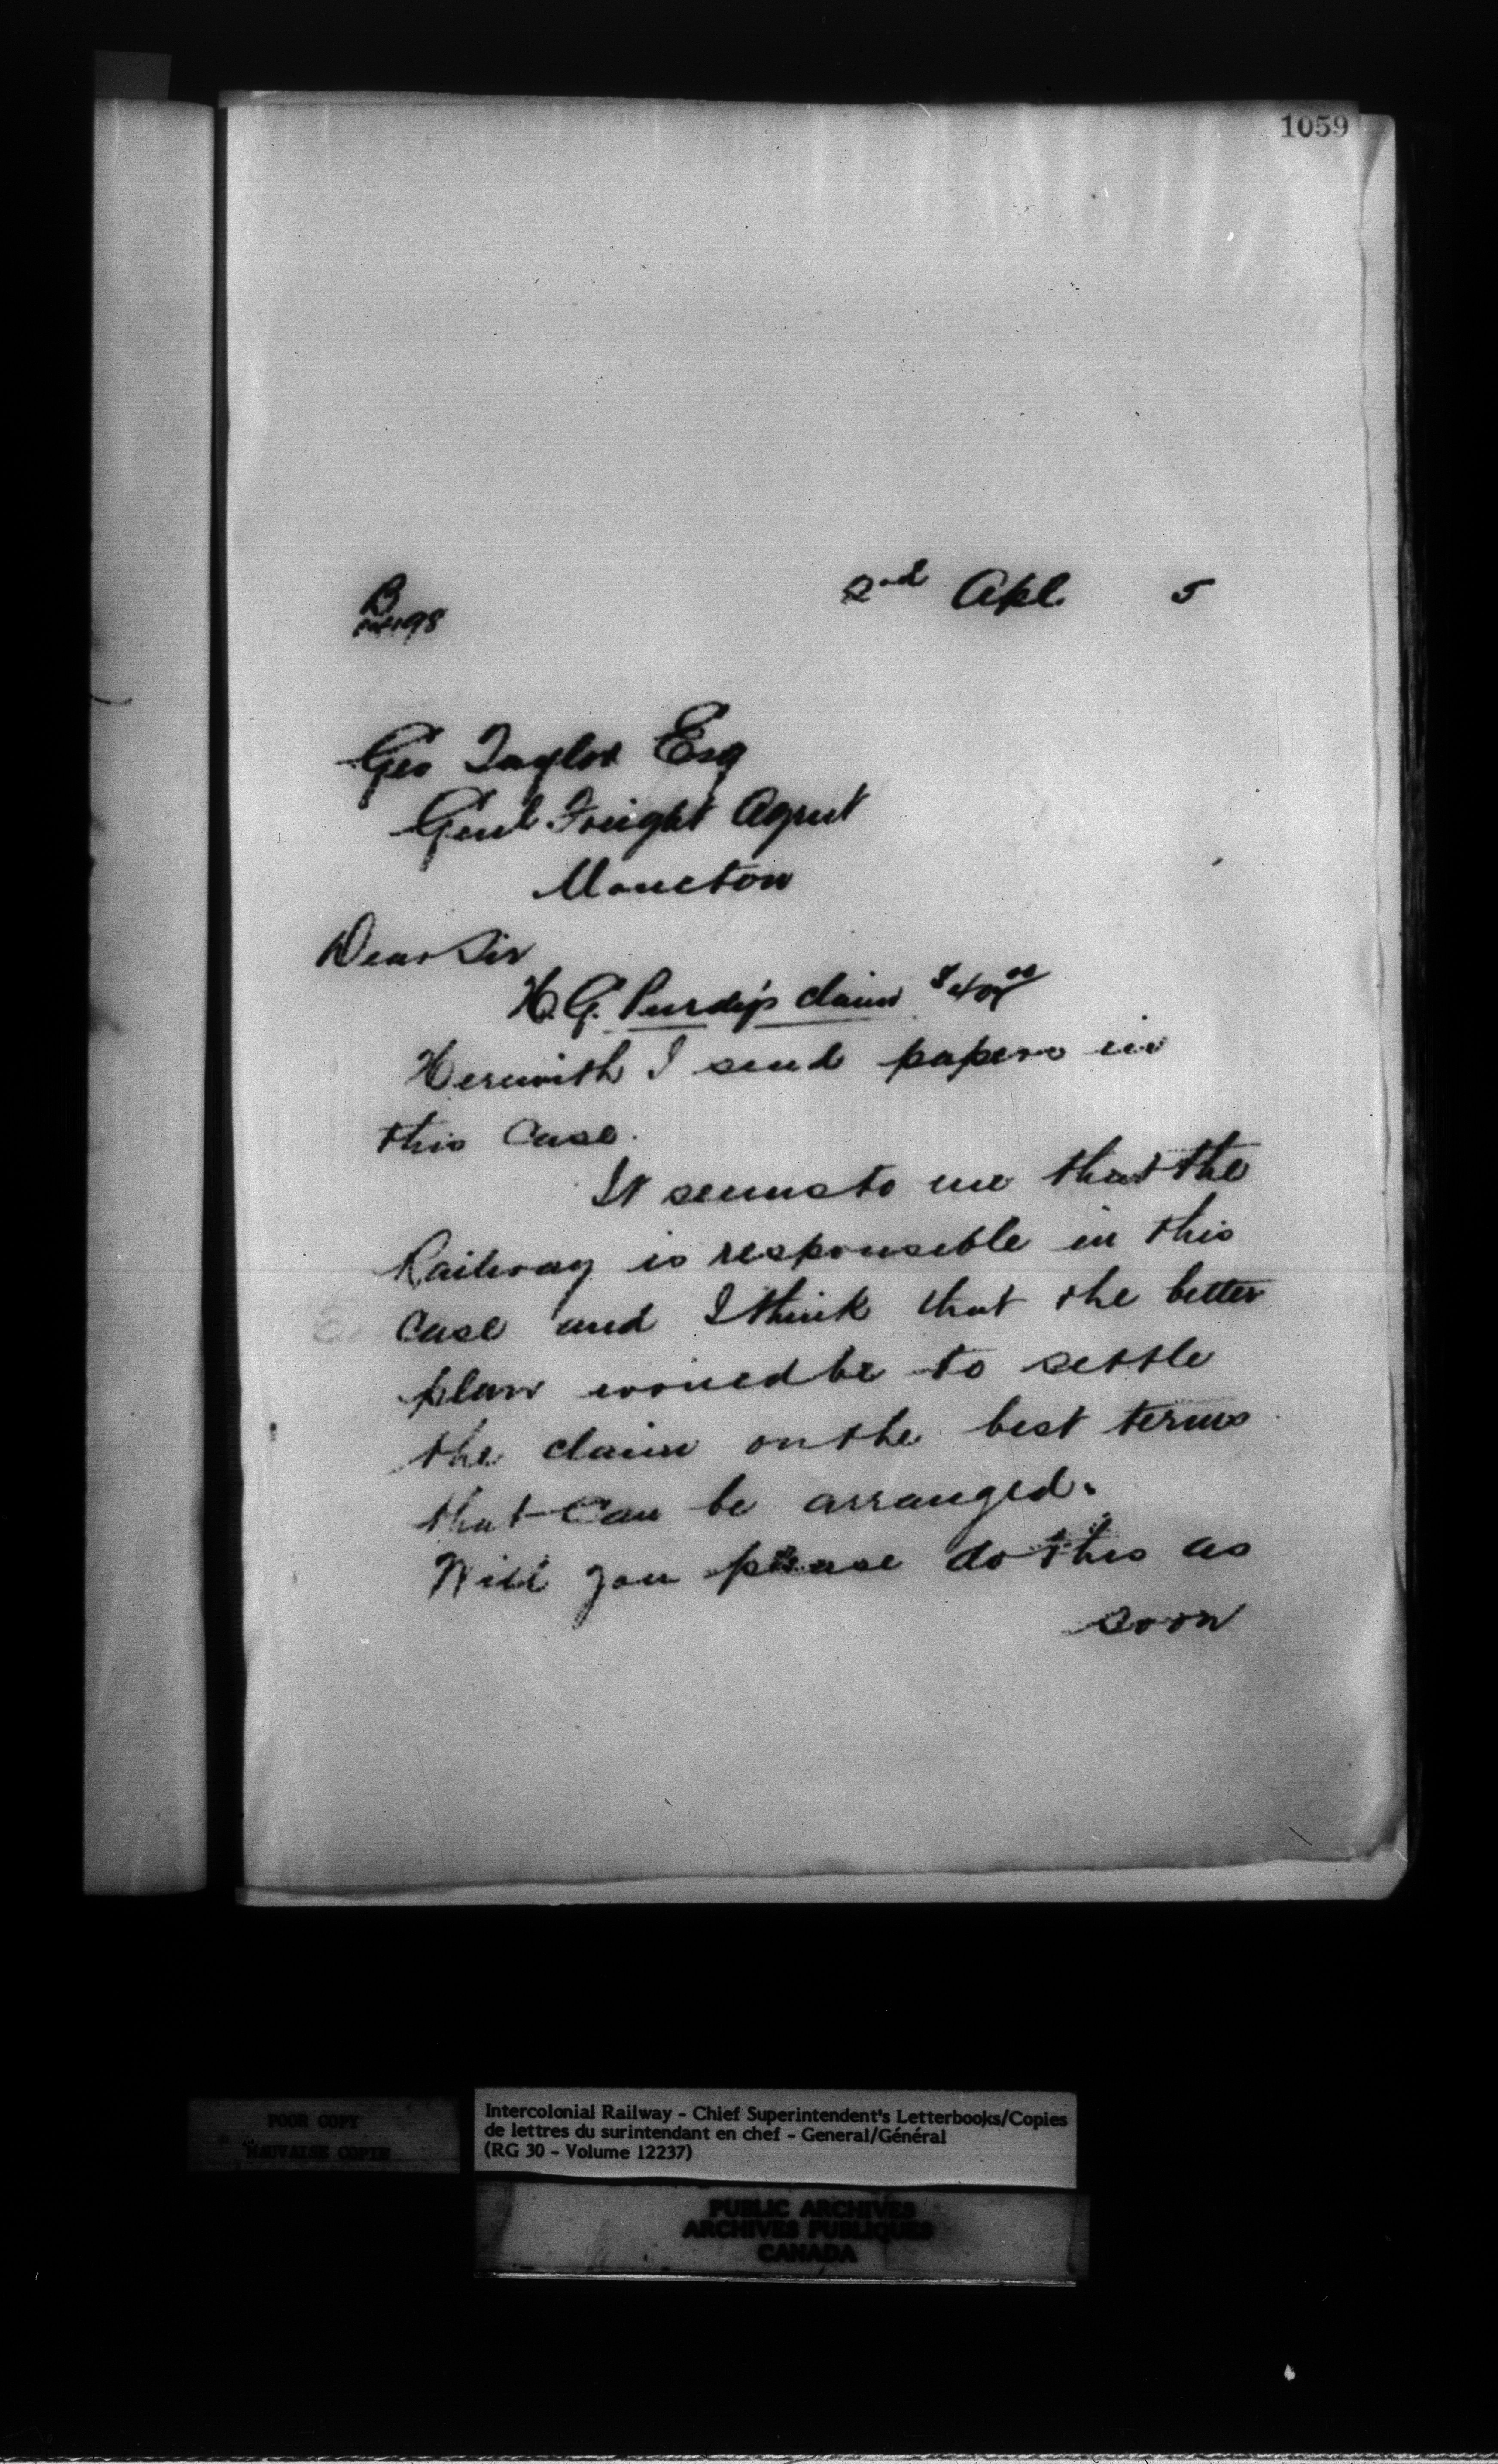 1059
2nd Apl. 5
B
Geo Taylor Esq
Genl Freight Agent
Moncton
Dear Sir
H. G. Purdy's claim
Herewith I send papers in
this case.
It seems to me that the
Railway is responsible in this
case and I think that the better
plan would be to settle
the claim on the best terms
that can be arranged.
Will you please do this as
soon
POOR COPY
MAUVAISE COPIE
Intercolonial Railway - Chief Superintendent's Letterbooks/Copies
de lettres du surintendant en chef - General/Général
(RG 30 - Volume 12237)
PUBLIC ARCHIVES
ARCHIVES PUBLIQUES
CANADA